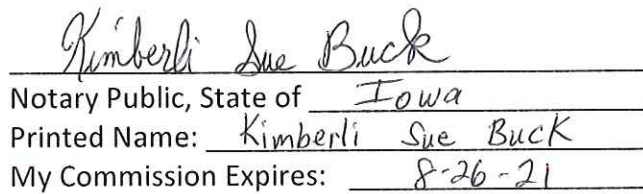 Kimberli Sue Buck
Notary Public, State of Iowa
Printed Name: Kimberli Sue Buck
My Commission Expires: 8-26-21